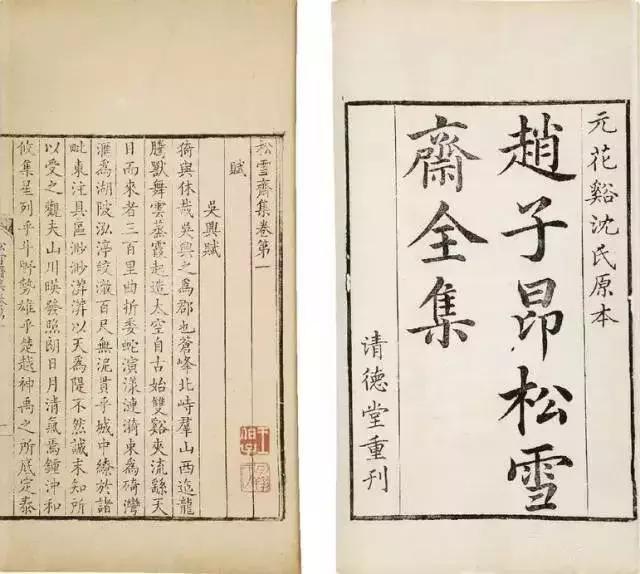 元花谿沈氏原本
趙子昂松雪
齋全集
清德堂重刊
松雪齋集卷第一
賦
吳興賦
猗與休哉吳興之為郡也蒼峰北峙羣山西迤龍
騰獸舞雲蒸霞起造太空自古始雙谿夾流繇天
目而來者三百里曲折委蛇演漾漣漪東為碕灣
滙為湖陂泓渟皎澈百尺無泥貫乎城中繚於諸
毗東注具區渺渺漭漭以天為隄不然誠未知所
以受之觀夫山川暎發照朗日月清氣焉鍾沖和
攸集星列乎斗野勢雄乎楚越神禹之所底定泰